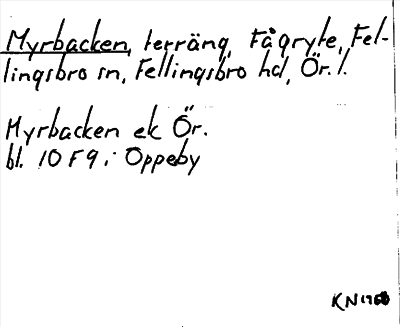 Myrbacken, terräng, Fågryte, Fel-
lingsbro sn, Fellingsbro hd, Ör. l.
Myrbacken ek Ör.
bl. 10 F 9 i Oppeby
KN